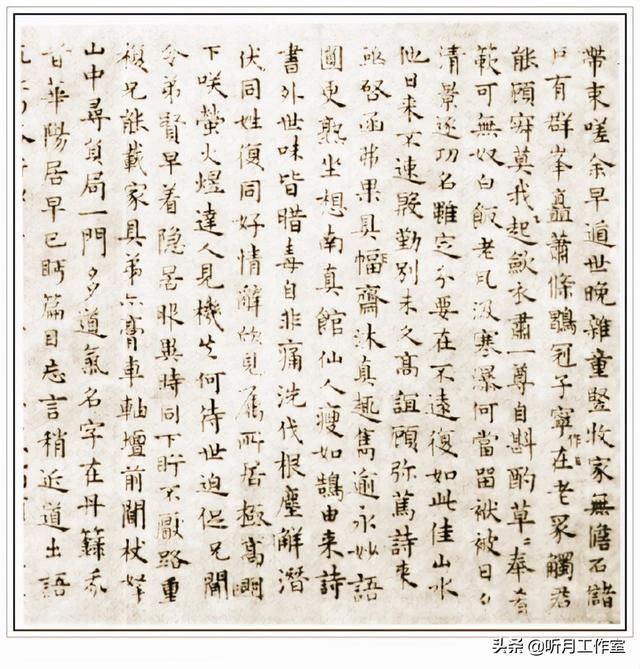 帶束嗟余早道世晚雜童豎牧家無儋石諸
戶有群峯矗蕭條鶡冠子寧在老冢觸君
能顧寂莫我起斂衣肅一尊自斟酌草〻奉肴
蔌可無奴白飯老瓦汲寒瀑何當留袱被日夕
清景逐功名雖定分要在不遠復如此佳山水
他日来不速殷勤別未久高誼顧弥篤詩来
亟啓函弗果具幅齋沐真趣雋逾永妙語
圓更熟坐想南真館仙人瘦如鵠由来詩
書外世味皆腊毒自非痛洗伐根塵解潛
伏同姓復同好情解見屬所居極高明
下咲螢火煜達人見機何待世迫促兄閒
令弟賢早着隐居服異時同下盱不厭路重
複兄能載家具弟亦膏車軸壇前閒杖屨
山中尋負局一門多道氣名字在丹籙
昔華陽居早已眄篇目忘言稍近道出語
头条 @听月工作室